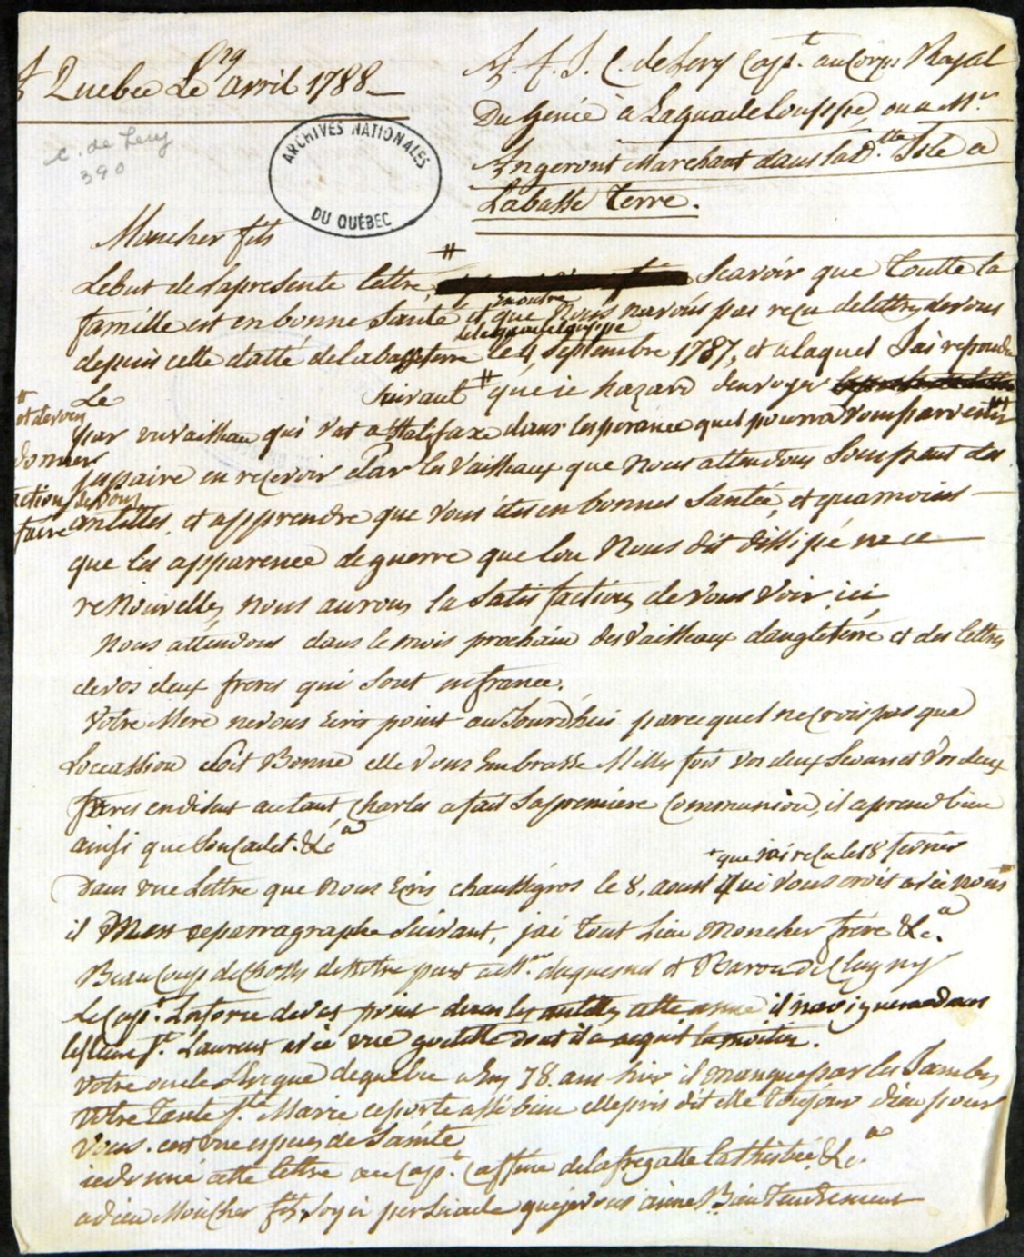 Quebec Le 29 avril 1788
A. F. J. C. de Lery Capt. au Corps Royal
Du Genie a Laguadelouppe, ou a Mr
Angeront Marchant dans lad.tte Isle a
Labasse Terre.
C. de Lery
390
ARCHIVES NATIONALES
DU QUÉBEC
Moncher fils
Lebut de Lapresente lettre, # Scavoir que Toutte la
famille est en bonne Santé et que Nous navons pas reçu delettres devous
en outre
de laguadelouppe
depuis celle datté de Labasseterre le 4 Septembre 1787, et alaquel J'ai repondu
Le Suivant # que je hazard denvoyer
# et devous
donner
faire
par un vaisseau qui vat a Halifaxe dans lesperance quel poura vous parvenir
en reçevoir Par les Vaisseaux que Nous attendons des
antilles, et apprendre que Vous étes en bonnes Santée, et quamoins
que les apparence de guerre que lon Nous dit dissipé ne ce
renouvelles, nous aurons la Satisfaction de Vous Voir ici
Nous attendons dans le mois prochain des Vaisseaux dangleterre et des lettres
de vos deux freres qui Sont en france.
Votre Mere ne vous Ecris point au Jourdhui parcequel ne crois pas que
Loccassion Soit Bonne elle Vous Embrasse Mille fois vos deux Soeurs et Vos deux
freres en disent autant, Charles a fait Sa premiere Communion, il aprend bien
ainsi que Son Cadet. &c.a
+ que j'ai reçu le 18 fevrier
Dans une Lettre que Nous Ecris chaussegros le 8. aoust + qui Vous croit avec nous
il Mest ce parragraphe Suivant, j'ai Tout Lieu Moncher frere &c.a
Beaucoup de Choses de Notre part a Mr. duquesne et Baron De Clugny
le Capt. Laforce devas point dans les antilles cette année il navigueradans
lefleuve St. Laurent avec une goelette dont il a acquit la moitier.
Votre oncle Levéque de quebec a Eus 78. ans hier il manque par les Jambes
Votre Tante Ste. Marie ceporte assé bien elle pris dit elle Toujour dieu pour
Vous. cest une espece de Sainte
je donné cette lettre au Capt. Coffine de la fregatte la thisbée. &c.a
adieu Moncher fils, Soyer persuade que je vous aime Bien Tendrement